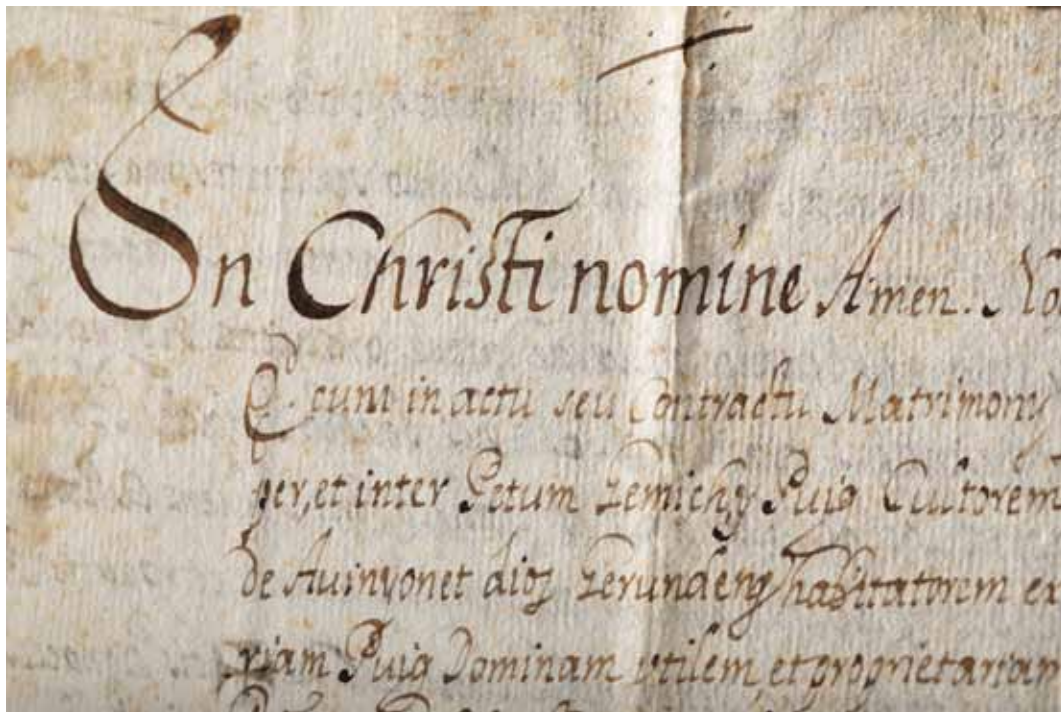 In Christi nomine Amen. No
Et cum in actu seu Contractu Matrimony
per, et inter Petum Puig Cultorem
de Auinyonet dioş Gerundenş habitatorem et
riam Puig Dominam vtilem, et proprietariam